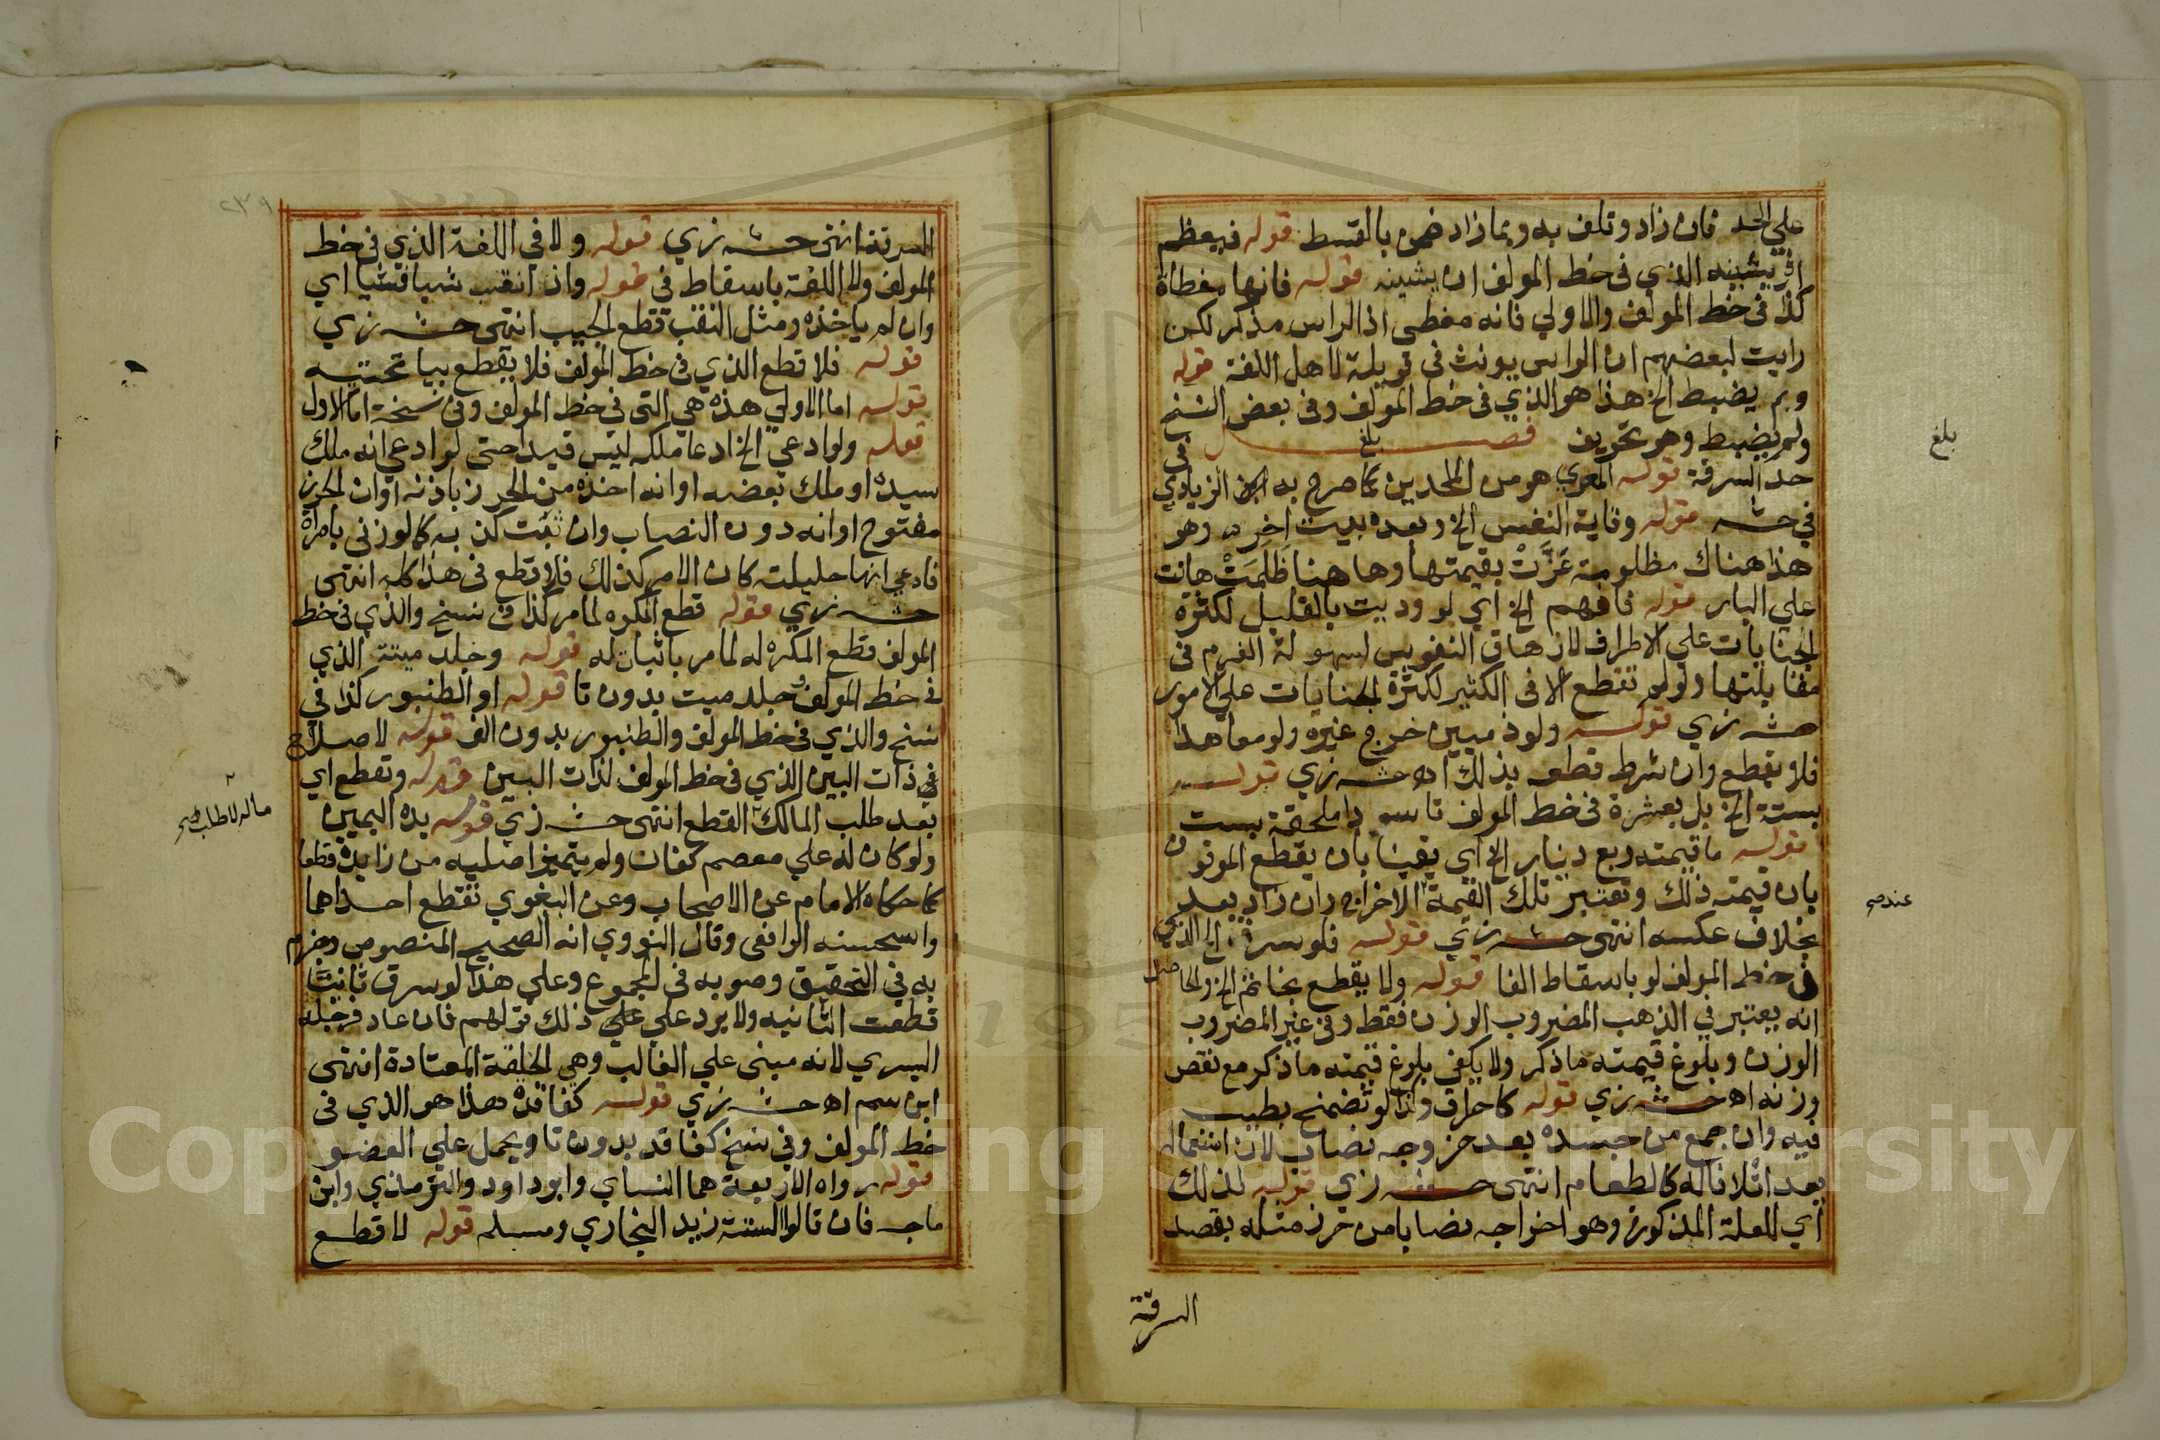 علي الحد فان زاد وتلف به وبما زاد ضمن بالقسط قوله فيعظم
او يشينه الذي في خط المولف ان يشينه قوله فانها مغطاة
كذا في خط المولف والاولي فانه مغطى اذ الراس مذكر لكن
رايت لبعضهم ان الراس يونث في قويلة لاهل اللغة قوله
وبم يضبط الخ هذا هو الذي في خط المولف وفي بعض النسخ
ولم يضبط وهو تحريف فصل في
بلغ
حد السرقة قوله المعري هو من الملحدين كما صرح به الزيادي
في حشه قوله وقاية النفس الخ وبعده بيت اخر وهو
هذا هناك مظلومة عَزَّتْ بقيمتها وها هنا ظَلمَتْ هانت
علي البار قوله فافهم الخ اي لو وديت بالقليل لكثرة
الجنايات علي الاطراف لازهاق النفوس لسهولة الغرم في
مقابلتها ولو لم تقطع الا في الكثير لكثرة الجنايات علي الامور
حشه زي قوله ولو ذميين خرج غيره ولو معاهدا
فلا يقطع وان شرط قطعه بذلك اه حشه زي قوله
بستة الخ بل بعشرة في خط المولف ملحقة بست
قوله ما قيمته ربع دينار الخ اي يقينا بان يقطع المقومون
بان قيمته ذلك وتعتبر تلك القيمة الاخراج وان زاد بعد
عند صح
بخلاف عكسه انتهى حشه زي قوله فلو سرق الخ الذي
في خط المولف لو باسقاط الفا قوله ولا يقطع بخاتم الخ والحاصل
انه يعتبر في الذهب المضروب الوزن فقط وفي غير المضروب
الوزن وبلوغ قيمته ما ذكر ولا يكفي بلوغ قيمته ما ذكر مع نقص
وزنه اه حشه زي قوله كاحراق وكذا لو تضمخ بطيب
فيه وان جمع من جسده بعد خروجه نصاب لان استعماله
يعد اتلافا له كالطعام انتهى حشه زي قوله لذلك
اي للعلة المذكورة وهو اخراجه نصابا من حرز مثله بقصد
السرقة
السرقة انتهى حشه زي قوله ولا في اللغة الذي في خط
المولف ولا اللغة باسقاط في قوله وان انقب شيا فشيا اي
وان لم ياخذه ومثل النقب قطع الجيب انتهى حشه زي
قوله فلا قطع الذي في خط المولف فلا يقطع بيا تحتيه
قوله اما الاولي هذه هي التي في خط المولف وفي نسخة اما الاول
قوله ولو ادعي الخ ادعا ملكه ليس قيدا حتى لو ادعي انه ملك
سيده او ملك بعضه او انه اخذه من الحرز باذنه او ان الحرز
مفتوح او انه دون النصاب وان ثبت كذبه كما لو زني بامراة
فادعي انها حليلته كان الامر كذلك فلا قطع في هذا كله انتهى
حشه زي قوله قطع المكره لما مر كذا في نسخ والذي في خط
المولف قطع المكره له لما مر باثبات له قوله وجلد ميتة الذي
في خط المولف وجلد ميت بدون تا قوله او الطنبور كذا في
نسخ والذي في خط المولف والطنبور بدون الف قوله لاصلاح
في ذات البين الذي في خط المولف لذات البين قوله وتقطع اي
بعد طلب المالك القطع انتهى حشه زي قوله يده اليمين
ماله لا طلب صح
ولو كان له علي معصم كفان ولم يتميز اصليه من زايده قطعا
كما حكاه الامام عن الاصحاب وعن البغوي تقطع احداهما
واستحسنه الرافعي وقال النووي انه الصحيح المنصوص وجزم
به في التحقيق وصوبه في المجموع وعلي هذا لو سرق ثانيًا
قطعت الثانيه ولا يرد علي علي ذلك قولهم فان عاد فرجله
اليسري لانه مبني علي الغالب وهي الخلقة المعتادة انتهى
ابن سم اه حشه زي قوله كفاقده هذا هو الذي في
خط المولف وفي نسخ كفاقد بدون تا ويحمل علي العضو
قوله رواه الاربعة هما النساي وابو داود والترمذي وابن
ماجه فان قالوا الستة زيد البخاري ومسلم قوله لا قطع